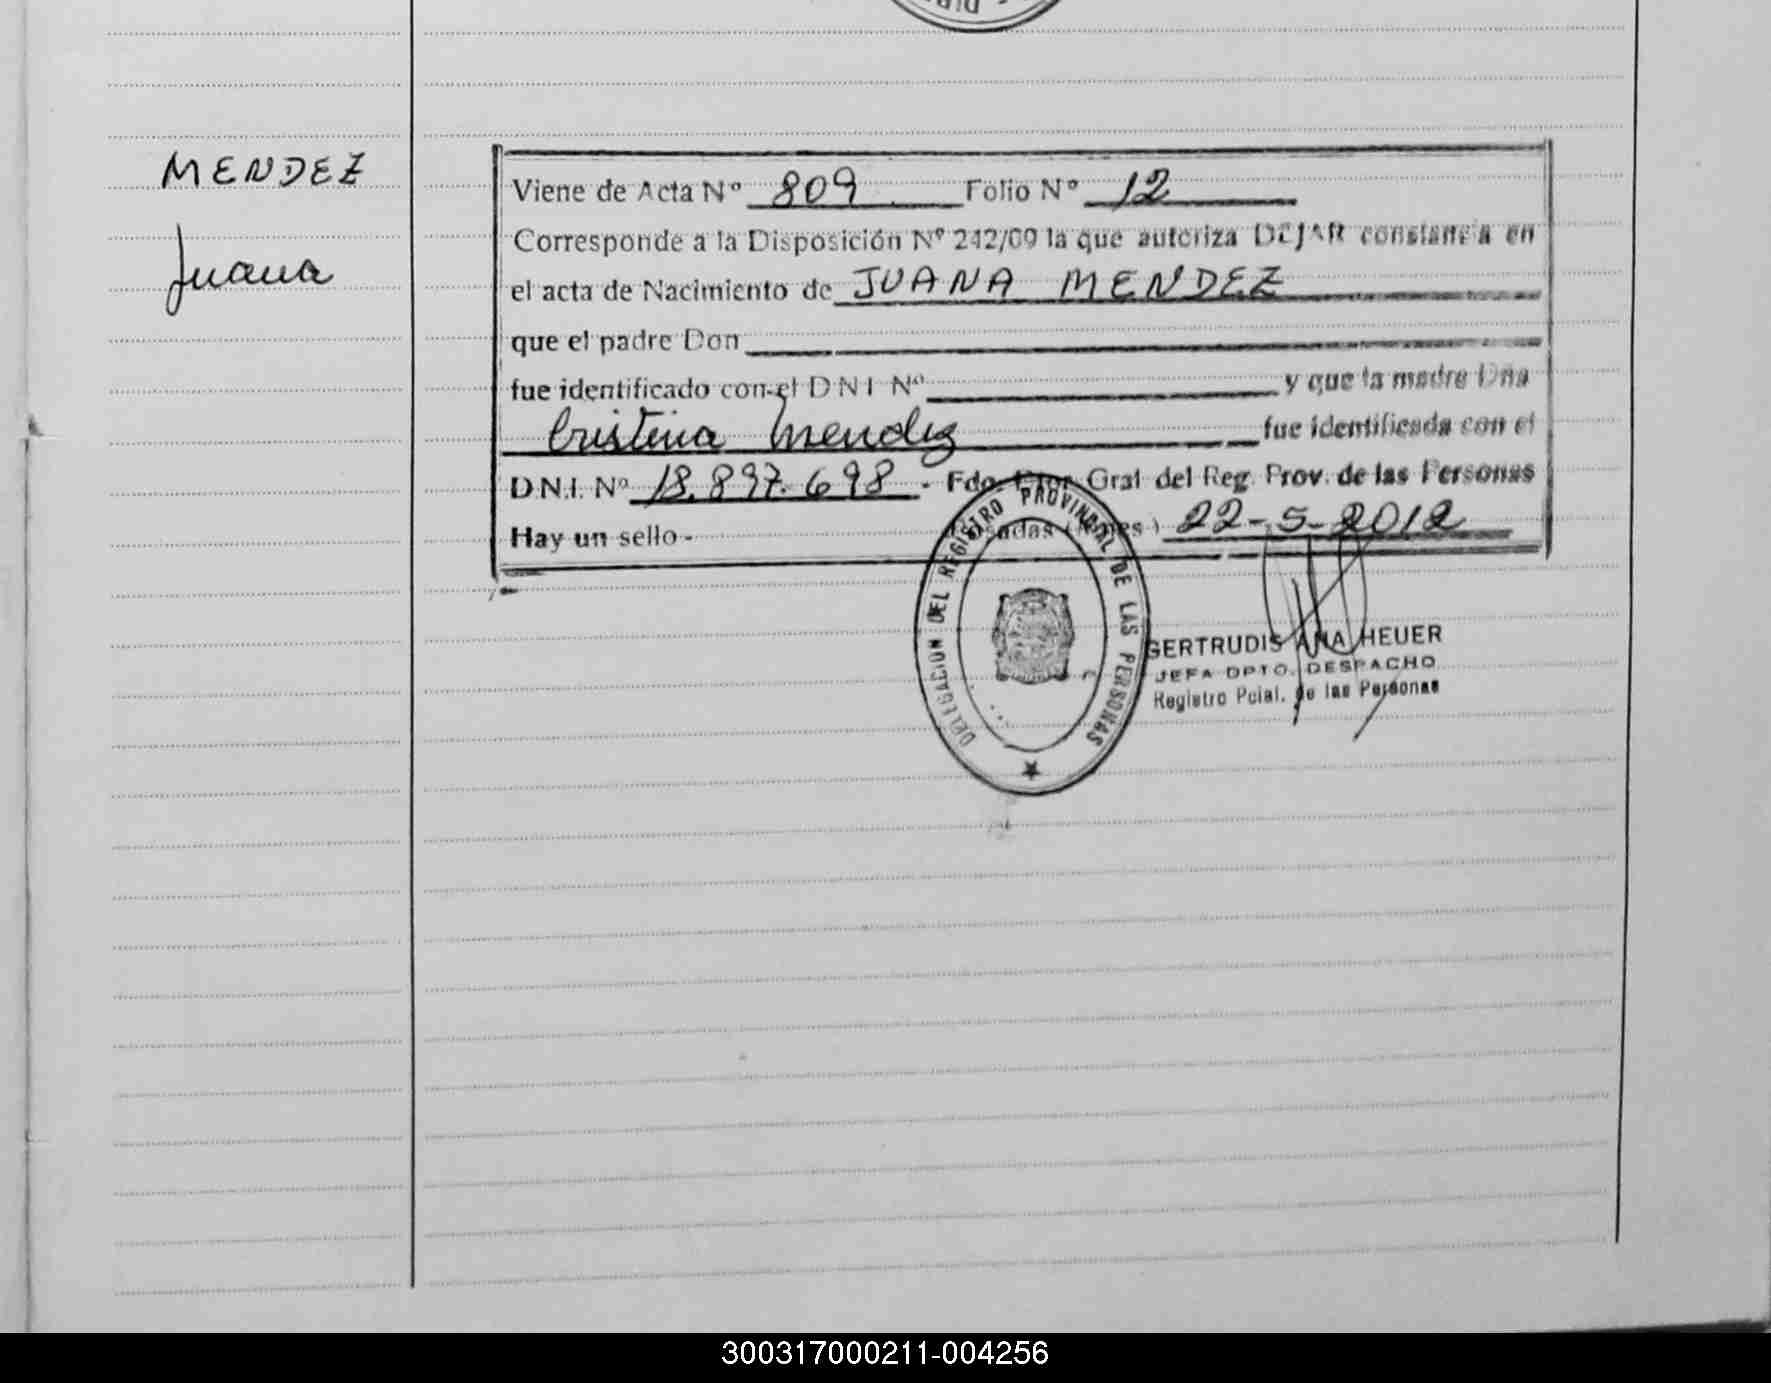 MENDEZ
Juana
Viene de Acta Nº 809 Folio Nº 12
Corresponde a la Disposición Nº 242/09 la que autoriza DEJAR constancia en
el acta de Nacimiento de JUANA MENDEZ
que el padre Don
fue identificado con el D N I Nº y que la madre Dña
Cristina Mendez fue identificada con el
D.N.I. Nº 18.897.698 - Fdo. Gral del Reg. Prov. de las Personas
Hay un sello - Posadas (Mnes) 22-5-2012
DELEGACION DEL REGISTRO PROVINCIAL DE LAS PERSONAS
GERTRUDIS ANA HEUER
JEFA DPTO. DESPACHO
Registro Pcial. de las Personas
300317000211-004256